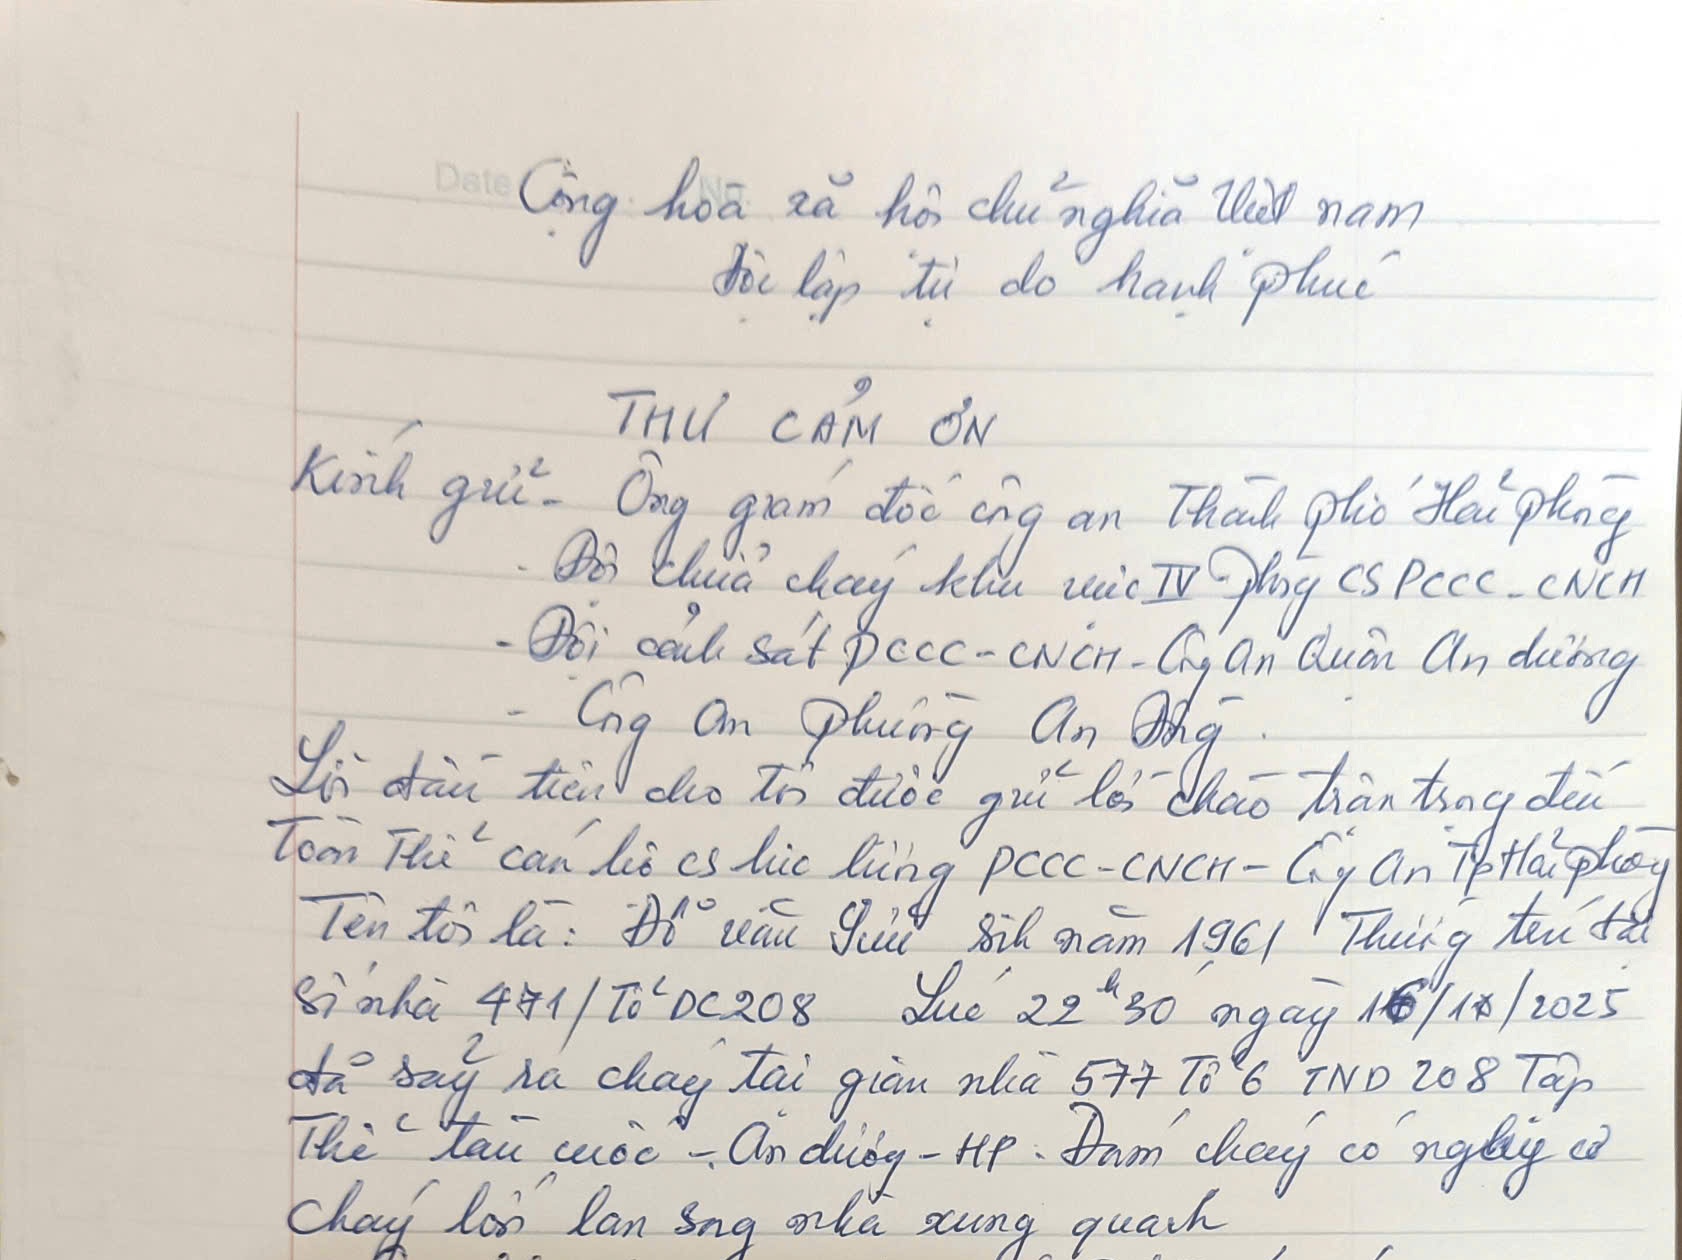 Date No.
Cộng hoà xã hội chủ nghĩa Việt nam
Độc lập tự do hạnh phúc
THƯ CẢM ƠN
Kính gửi - Ông giám đốc công an Thành phố Hải phòng
- Đội chữa cháy khu vực IV - phòng CS PCCC - CNCH
- Đội cảnh sát PCCC - CNCH - Công An Quận An dương
- Công An phường An Đồng.
Lời đầu tiên cho tôi được gửi lời chào trân trọng đến
Toàn Thể cán bộ CS lực lượng PCCC - CNCH - Công An Tp Hải phòng
Tên tôi là: Đỗ văn sinh năm 1961 Thường trú tại
Số nhà 471/Tổ DC208 Lúc 22h30 ngày /2025
đã sảy ra cháy tại gian nhà 577 Tổ 6 TND 208 Tập
Thể - An dương - HP. Đám cháy có nguy cơ
cháy lớn lan sang nhà xung quanh